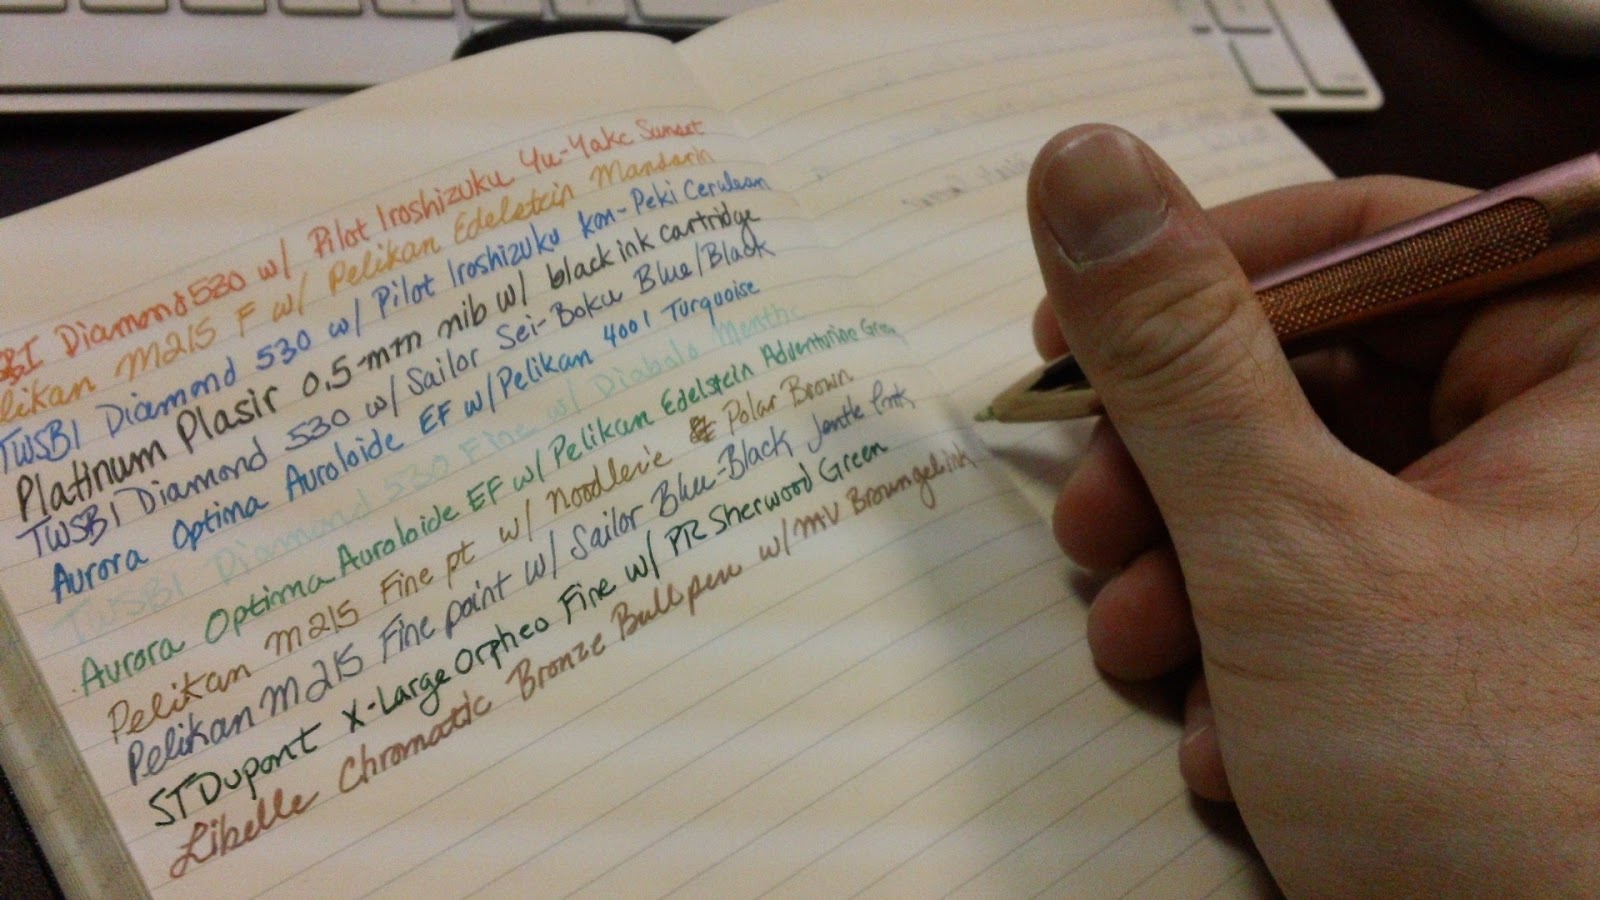 BI Diamond 530 w/ Pilot Iroshizuku Yu-Yake Sunset
likan M215 F w/ Pelikan Edelstein Mandarin
TWSBI Diamond 530 w/ Pilot Iroshizuku Kon-Peki Cerulean
Platinum Plasir 0.5-mm nib w/ black ink cartridge
TWSBI Diamond 530 w/ Sailor Sei-Boku Blue/Black
Aurora Optima Auroloide EF w/ Pelikan 4001 Turquoise
TWSBI Diamond 530 Fine w/ Diabolo Menthe
Aurora Optima Auroloide EF w/ Pelikan Edelstein Adventurine Green
Pelikan M215 Fine pt w/ Noodler's Polar Brown
Pelikan M215 Fine point w/ Sailor Blue-Black Jentle Ink
STDupont X-Large Orpheo Fine w/ PR Sherwood Green
Libelle Chromatic Bronze Ballpen w/ MV Brown gel ink